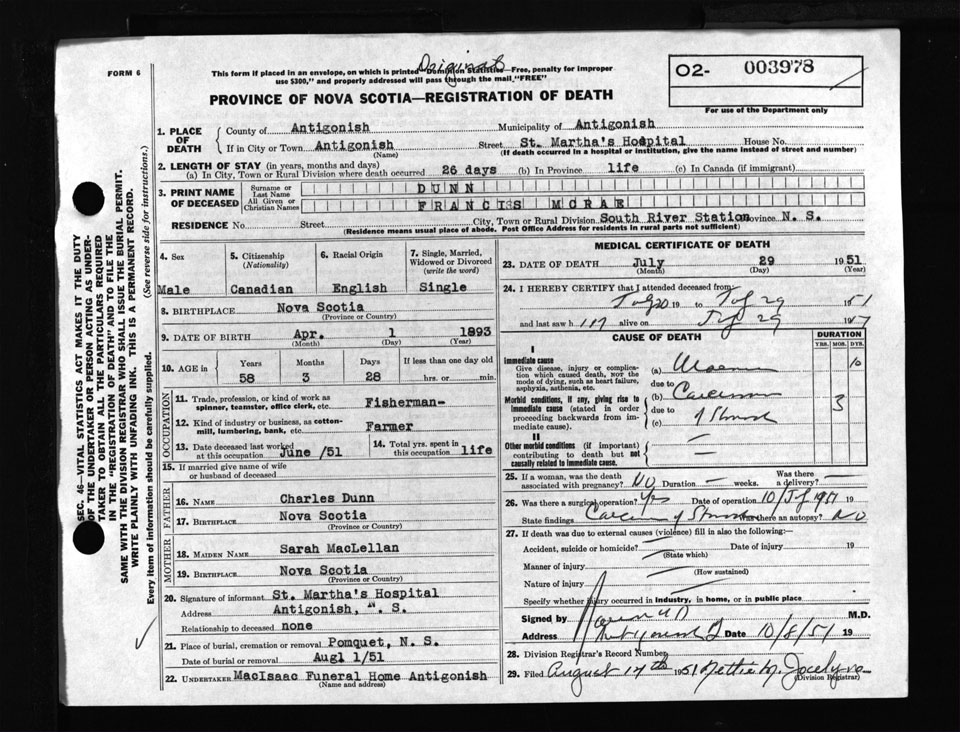 FORM 6
Original
This form if placed in an envelope, on which is printed "Dominion Statistics—Free, penalty for improper
use $300," and properly addressed will pass through the mail, "FREE"
PROVINCE OF NOVA SCOTIA—REGISTRATION OF DEATH
O2- 003978
For use of the Department only
SEC. 46—VITAL STATISTICS ACT MAKES IT THE DUTY
OF THE UNDERTAKER OR PERSON ACTING AS UNDER-
TAKER TO OBTAIN ALL THE PARTICULARS REQUIRED
IN THE "REGISTRATION OF DEATH" AND TO FILE THE
SAME WITH THE DIVISION REGISTRAR WHO SHALL ISSUE THE BURIAL PERMIT.
WRITE PLAINLY WITH UNFADING INK. THIS IS A PERMANENT RECORD.
Every item of information should be carefully supplied. (See reverse side for instructions.)
1. PLACE OF DEATH
County of Antigonish Municipality of Antigonish
If in City or Town Antigonish Street St. Martha's Hospital House No.
(Name) (If death occurred in a hospital or institution, give the name instead of street and number)
2. LENGTH OF STAY (in years, months and days)
(a) In City, Town or Rural Division where death occurred 26 days (b) In Province life (c) In Canada (if immigrant)
3. PRINT NAME OF DECEASED
Surname or Last Name DUNN
All Given or Christian Names FRANCIS MCRAE
RESIDENCE No. Street City, Town or Rural Division South River Station Province N. S.
(Residence means usual place of abode. Post Office Address for residents in rural parts not sufficient)
4. Sex
Male
5. Citizenship
(Nationality)
Canadian
6. Racial Origin
English
7. Single, Married,
Widowed or Divorced
(write the word)
Single
8. BIRTHPLACE Nova Scotia
(Province or Country)
9. DATE OF BIRTH Apr. 1 1893
(Month) (Day) (Year)
10. AGE in Years Months Days If less than one day old
58 3 28 hrs. or min.
OCCUPATION
11. Trade, profession, or kind of work as
spinner, teamster, office clerk, etc. Fisherman-
12. Kind of industry or business, as cotton-
mill, lumbering, bank, etc. Farmer
13. Date deceased last worked
at this occupation June /51
14. Total yrs. spent in
this occupation life
15. If married give name of wife
or husband of deceased
FATHER
16. NAME Charles Dunn
17. BIRTHPLACE Nova Scotia
(Province or Country)
MOTHER
18. MAIDEN NAME Sarah MacLellan
19. BIRTHPLACE Nova Scotia
(Province or Country)
20. Signature of informant St. Martha's Hospital
Address Antigonish, N. S.
Relationship to deceased none
21. Place of burial, cremation or removal Pomquet, N. S.
Date of burial or removal Augl 1/51
22. UNDERTAKER MacIsaac Funeral Home Antigonish
(Name and address)
MEDICAL CERTIFICATE OF DEATH
23. DATE OF DEATH July 29 1951
(Month) (Day) (Year)
24. I HEREBY CERTIFY that I attended deceased from
19 to 29 1951
and last saw him alive on 29 19
CAUSE OF DEATH
DURATION
YRS. MOS. DYS.
I
Immediate cause
Give disease, injury or complica-
tion which caused death, NOT the
mode of dying, such as heart failure,
asphyxia, asthenia, etc.
(a) 10
due to
Morbid conditions, if any, giving rise to
immediate cause (stated in order
proceeding backwards from im-
mediate cause).
(b) 3
due to
(c)
II
Other morbid conditions (if important)
contributing to death but not
causally related to immediate cause.
25. If a woman, was the death
associated with pregnancy? NO Duration — weeks. Was there a delivery? —
26. Was there a surgical operation? Yes Date of operation 10/ 19
State findings Was there an autopsy? NO
27. If death was due to external causes (violence) fill in also the following:—
Accident, suicide or homicide? Date of injury 19
(State which)
Manner of injury
(How sustained)
Nature of injury
Specify whether injury occurred in industry, in home, or in public place
Signed by M.D.
Address Date 10/8/51 19
28. Division Registrar's Record Number
29. Filed August 17th 1951 Nettie M. Jocelyn
(Division Registrar)